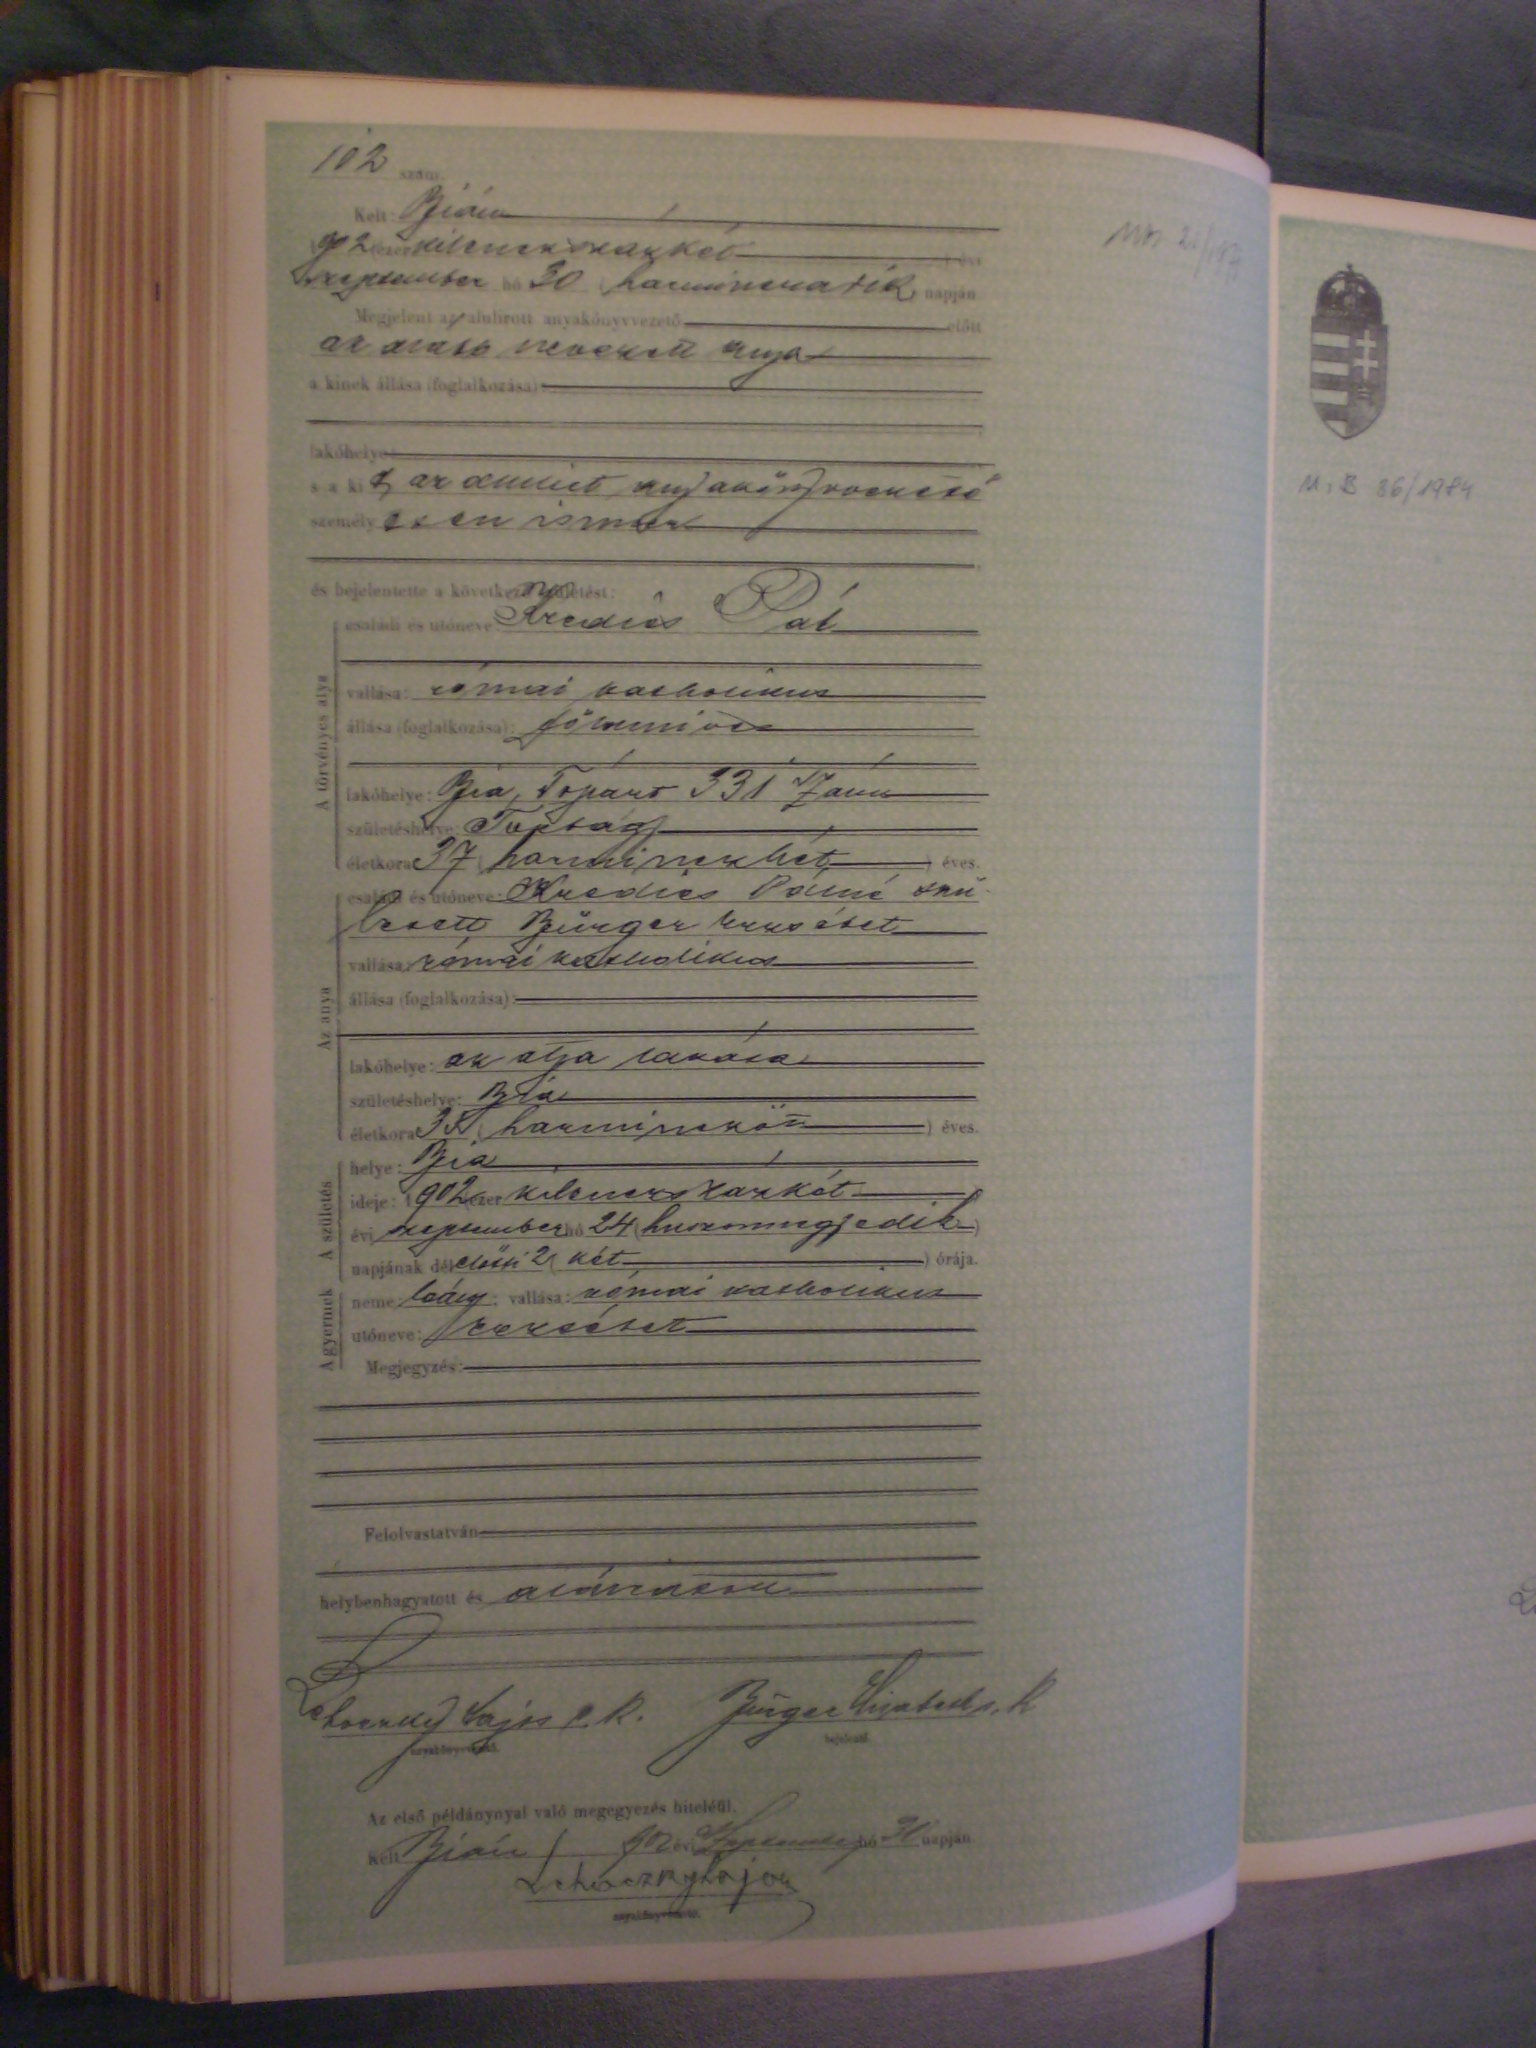 102 szám.
Kelt: Bián
902 (ezer kilenczszázkét) évi
szeptember hó 30 (harminczadik) napján
Megjelent az alulírott anyakönyvvezető előtt
az alább nevezett anya
a kinek állása (foglalkozása):
lakóhelye:
s a kit az anyakönyvvezető
személyesen ismer
és bejelentette a következő születést:
A törvényes atya
családi és utóneve: Pál
vallása: római katholikus
állása (foglalkozása): földmives
lakóhelye: Bia, 331
születéshelye: Torbágy
életkora: 37 (harminczhét) éves.
Az anya
családi és utóneve: Pálné szü-
letett Bürger Erzsébet
vallása: római katholikus
állása (foglalkozása):
lakóhelye: az atya lakása
születéshelye: Bia
életkora: 35 (harminczöt) éves.
A születés
helye: Bia
ideje: 1902 (ezer kilenczszázkét)
évi szeptember hó 24 (huszonnegyedik)
napjának délelőtti 2 (két) órája.
A gyermek
neme: leány; vallása: római katholikus
utóneve: Erzsébet
Megjegyzés:
Felolvastatván
helybenhagyatott és aláíratott
Lehoczky Lajos s. k. Bürger Elizabeth s. k.
anyakönyvvezető. bejelentő.
Az első példánynyal való megegyezés hiteléül.
Kelt Bián 902 évi szeptember hó 30 napján
Lehoczky Lajos
anyakönyvvezető.
M. B 86/1984